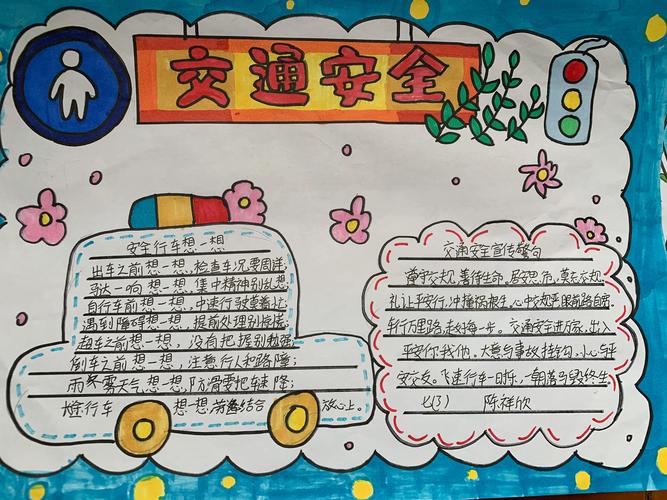 交通安全
安全行车想一想
出车之前想一想,检查车况要周详;
马达一响想一想,集中精神别乱想
自行车前想一想,中速行驶莫着忙
遇到障碍想一想,提前处理别慌张
超车之前想一想,没有把握别勉强
倒车之前想一想,注意行人和路障;
雨冬雾天气想一想,防滑要把车速降;
行车 想一想 结合 放心上。
交通安全宣传警句
遵守交规,善待生命,居安思危,莫忘交规
礼让平安行,冲撞祸根生,心中交规严眼前路自宽,
车行万里路,走好每一步。交通安全进万家,出入
平安你我他。大意与事故挂钩,小心与平
安交友。飞速行车一日快,一朝毁终生
七(3) 陈祥欣